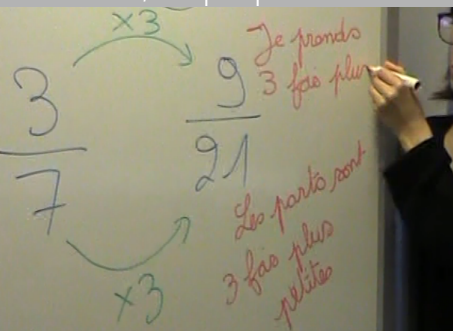 ×3
3
7
×3
9
21
Je prends
3 fois plus
Les parts sont
3 fois plus
petites